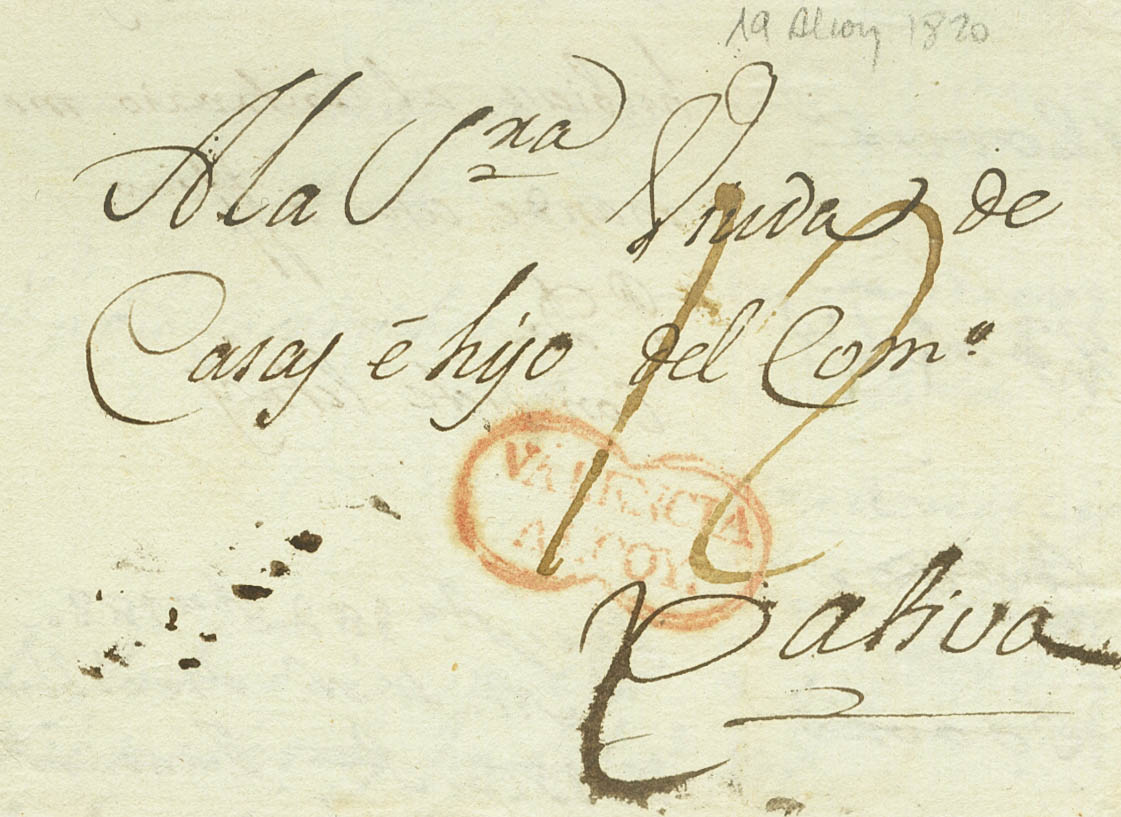 19 Alcoy 1820
A la Sra Viuda de
Casas é hijo del Como
VALENCIA
ALCOY.
Xativa